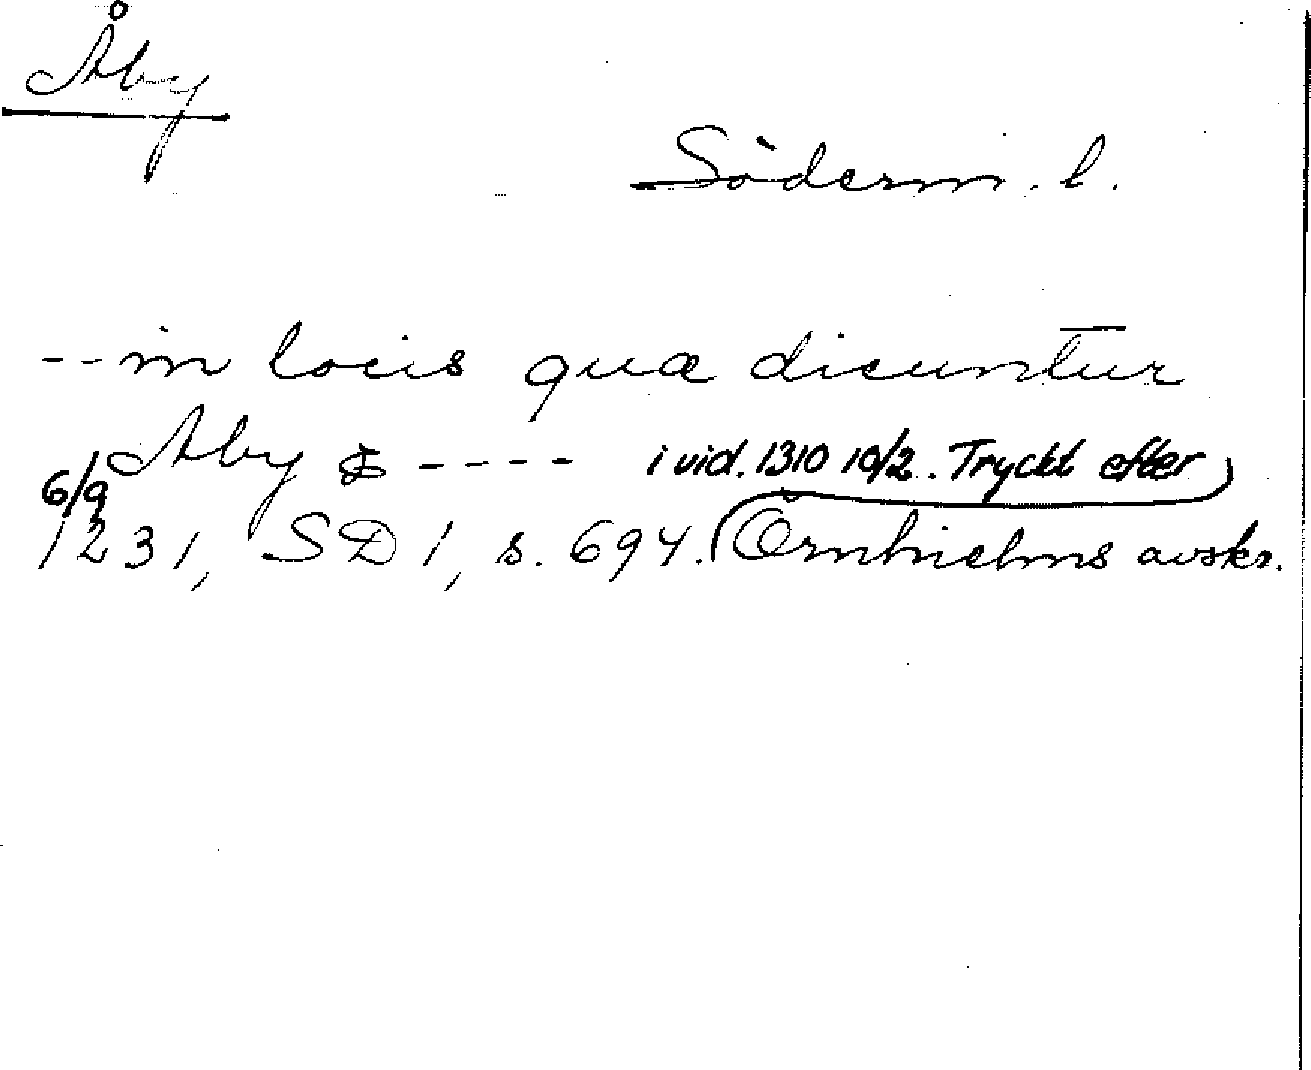 Åby
Söderm. l.
-- in locis quæ dicuntur
Aby & ---- i vid. 1310 10/2. Tryckt efter
6/9
1231, SD 1, s. 694. Örnhielms avskr.